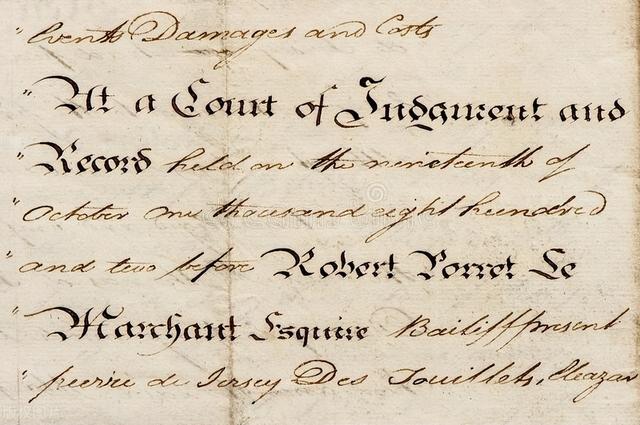 " Events Damages and Costs
" At a Court of Judgment and
" Record held on the nineteenth of
" October one thousand eight hundred
" and two before Robert Porret Le
" Marchant Esquire Bailiff present
" pierre de Jersey Des Touillets, Eleazar